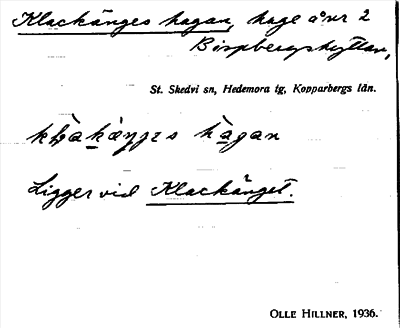 Klackänges hagan, hage å nr 2
Bispbergshyttan,
St. Skedvi sn, Hedemora tg, Kopparbergs län.
hagan
Ligger vid Klackänget.
OLLE HILLNER, 1936.